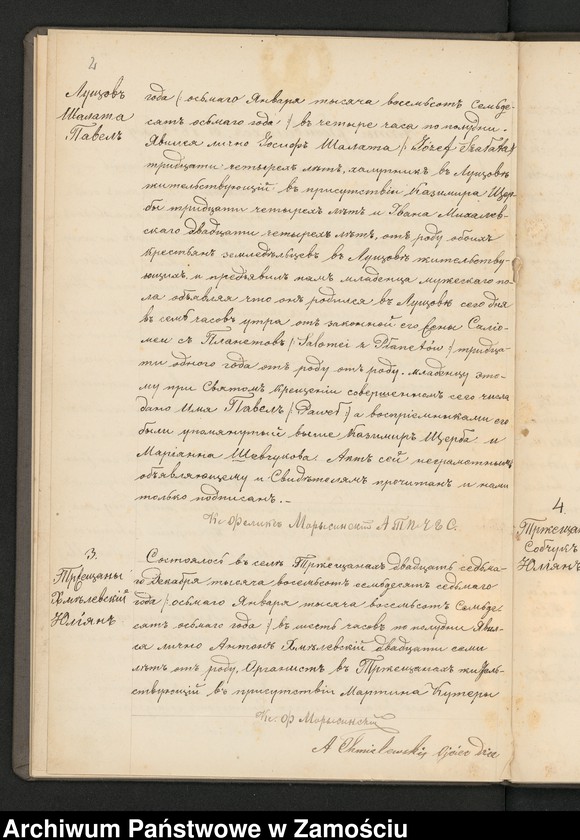 2
Лущовъ
Шалата
Павелъ
года / осьмаго Января тысяча восемьсотъ Семьде-
сятъ осьмаго года / въ четыре часа по полудни.
Явился лично Іосифъ Шалата / Józef Szałata /
тридцати четырехъ лѣтъ, халупникъ въ Лущовѣ
жительствующій въ присутствіи Казимира Щер-
бы тридцати четырехъ лѣтъ и Ивана Михалев-
скаго двадцати четырехъ лѣтъ, отъ роду обоихъ
крестьянъ земледѣльцевъ въ Лущовѣ жительству-
ющихъ, и предъявилъ намъ младенца мужескаго по-
ла объявляя что онъ родился въ Лущовѣ сего дня
въ семь часовъ утра отъ законной его Жены Саліо-
меи съ Планетовъ / Salomei z Planetów / тридца-
ти одного года отъ роду отъ роду. Младенцу это-
му при Святомъ крещеніи совершенномъ сего числа
дано Имя Павелъ / Paweł / а воспріемниками его
были упомянутый выше Казимиръ Щерба и
Маріанна Шевчукова. Актъ сей неграмотнымъ
объявляющему и Свидѣтелямъ прочитанъ и нами
только подписанъ. –
Кс. Феликсъ Марысинскій А П Ч Г С.
3.
Тржещаны
Хмѣлевскій
Юліянъ
Состоялось въ селѣ Тржещанахъ двадцать седьма-
го Декабря тысяча восемьсотъ семьдесятъ седьмаго
года / осьмаго Января тысяча восемьсотъ Семьде-
сятъ осьмаго года / въ шесть часовъ по полудни Яви-
лся лично Антонъ Хмѣлевскій двадцати семи
лѣтъ отъ роду, Органистъ въ Тржещанахъ житель-
ствующій въ присутствіи Мартина Кутеры
Кс. Ф Марысинскій
A Chmielewski Ojciec
4.
Тржещан
Собчукъ
Юліянъ
Archiwum Państwowe w Zamościu